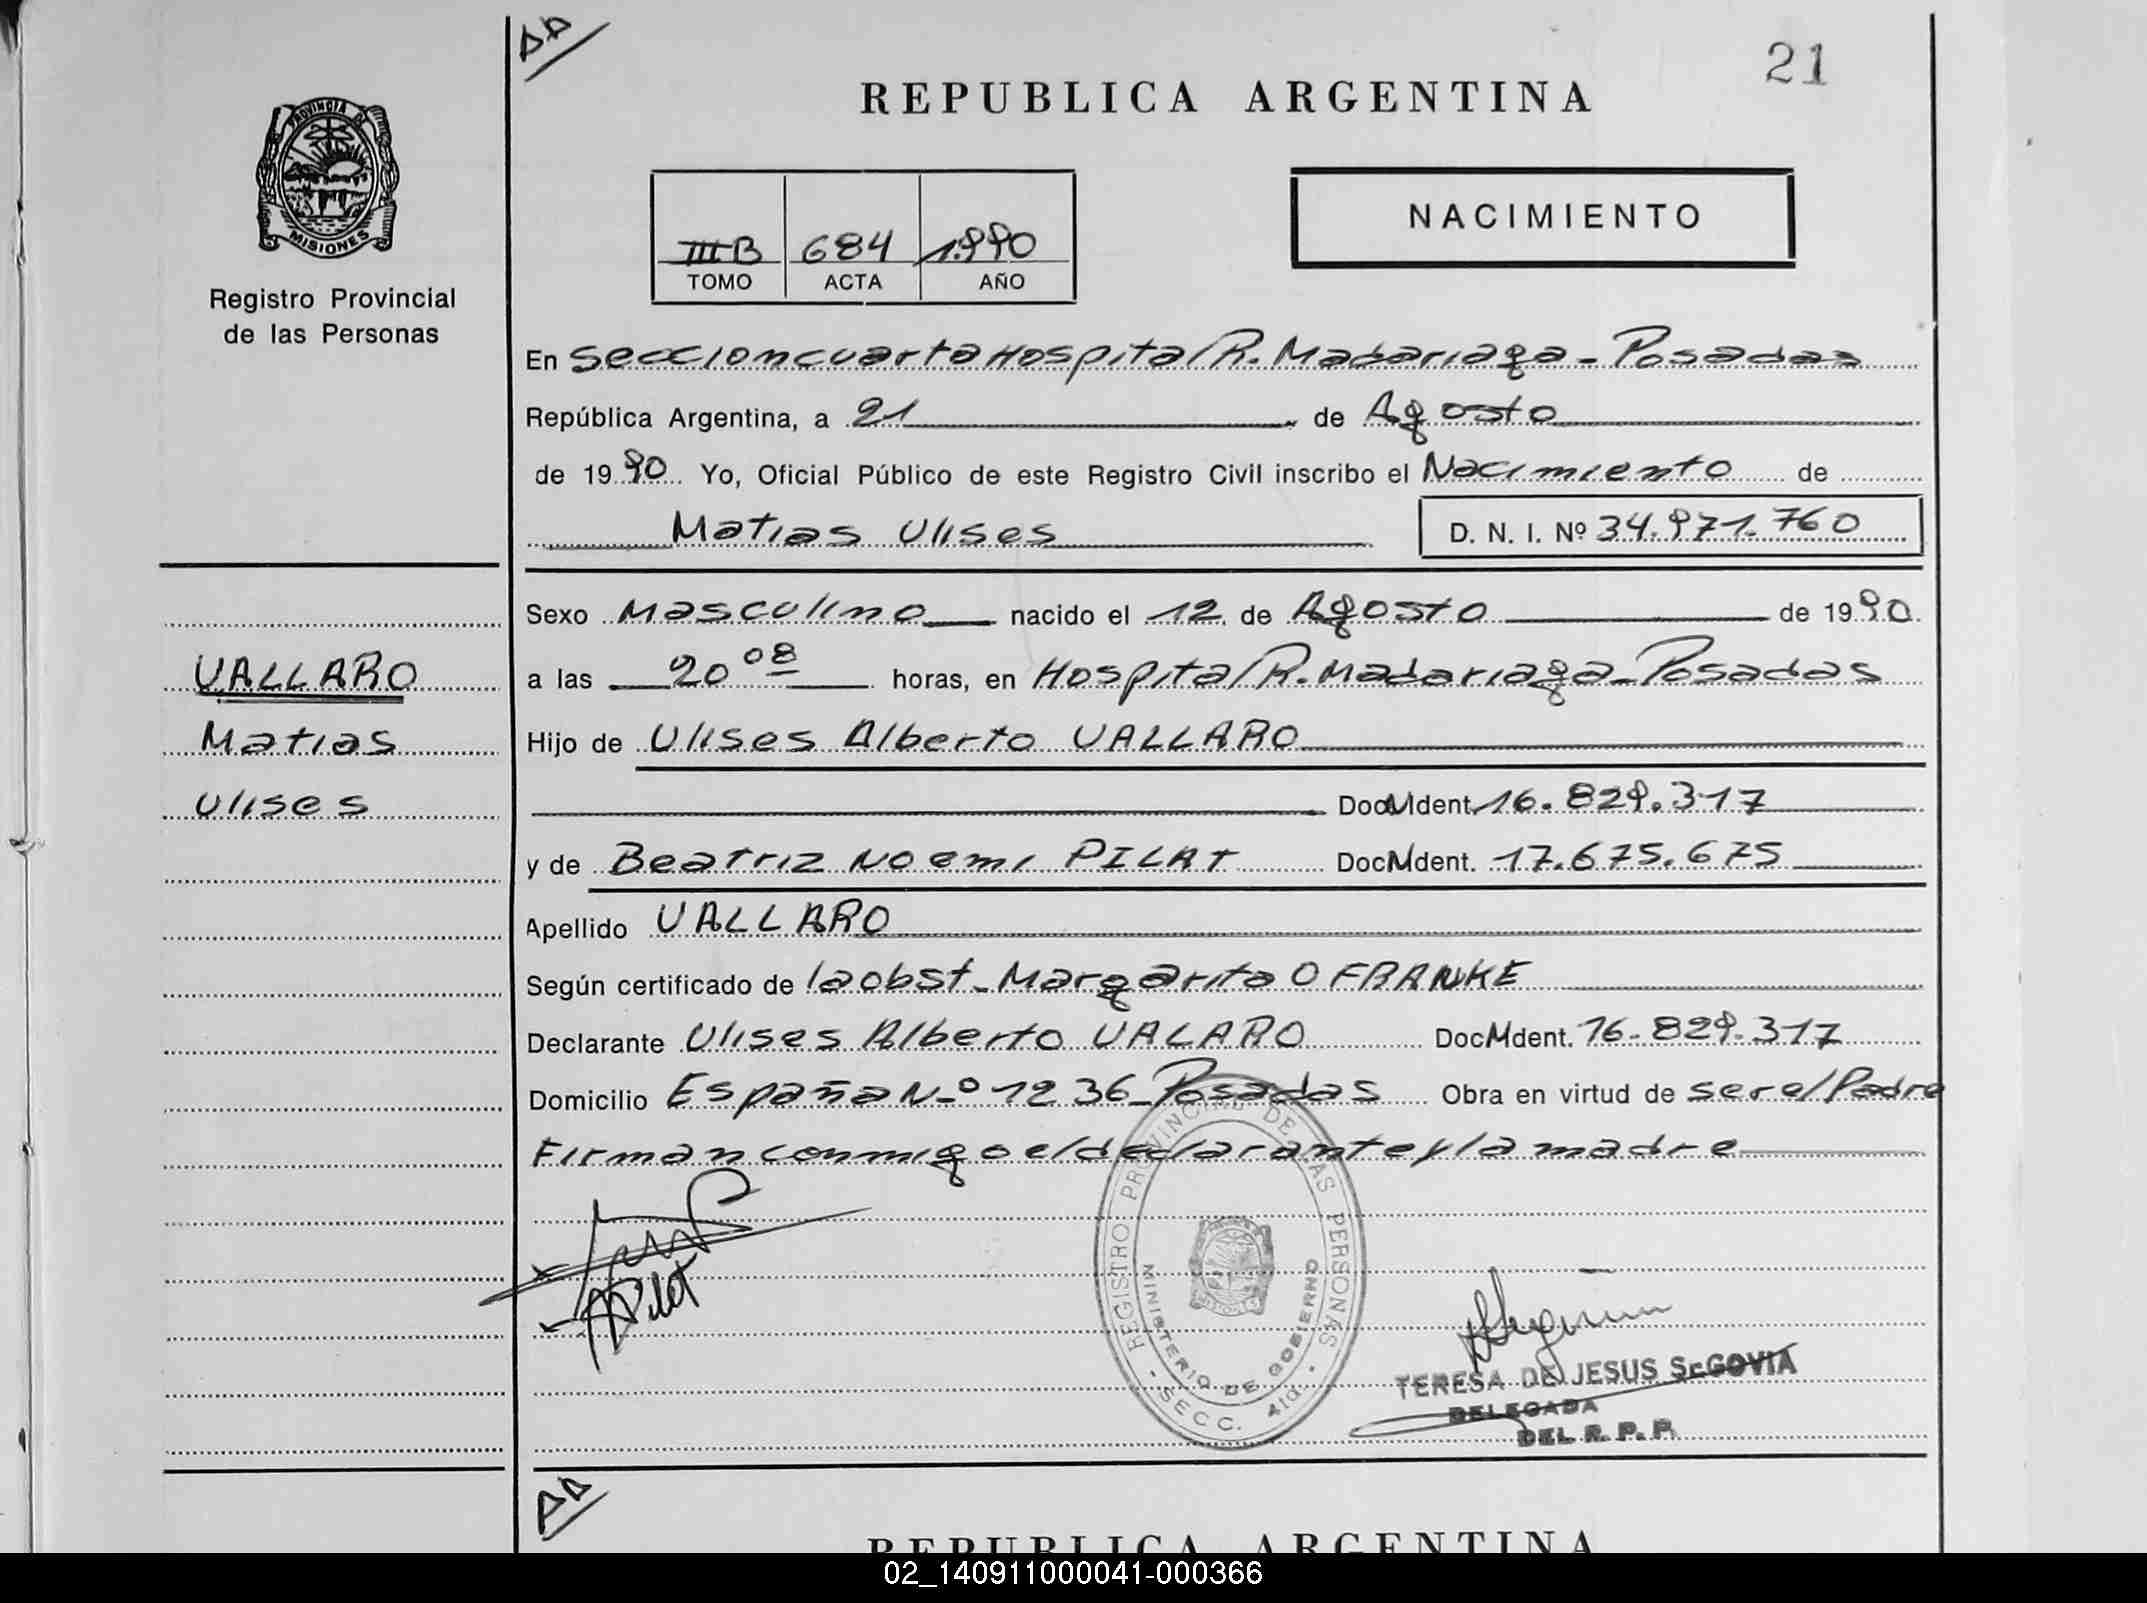 21
REPUBLICA ARGENTINA
PROVINCIA DE
MISIONES
Registro Provincial
de las Personas
III B 684 1.990
TOMO ACTA AÑO
NACIMIENTO
En Seccion cuarta Hospital R. Madariaga - Posadas
República Argentina, a 21 de Agosto
de 1990 Yo, Oficial Público de este Registro Civil inscribo el Nacimiento de
Matias Ulises D. N. I. Nº 34.971.760
Sexo Masculino nacido el 12 de Agosto de 1990
a las 20 08 horas, en Hospital R. Madariaga - Posadas
Hijo de Ulises Alberto VALLARO
Doc. Ident. 16.829.317
y de Beatriz Noemi PILAT Doc. Ident. 17.675.675
Apellido VALLARO
Según certificado de la obst. Margarita O FRANKE
Declarante Ulises Alberto VALARO Doc. Ident. 16.829.317
Domicilio España N-º 1236 - Posadas Obra en virtud de ser el Padre
Firman conmigo el declarante y la madre
VALLARO
Matias
Ulises
REGISTRO PROVINCIAL DE LAS PERSONAS
MINISTERIO DE GOBIERNO
SECC. 4ta.
Pilat
TERESA DE JESUS SEGOVIA
DELEGADA
DEL R. P. P.
REPUBLICA ARGENTINA
02_140911000041-000366